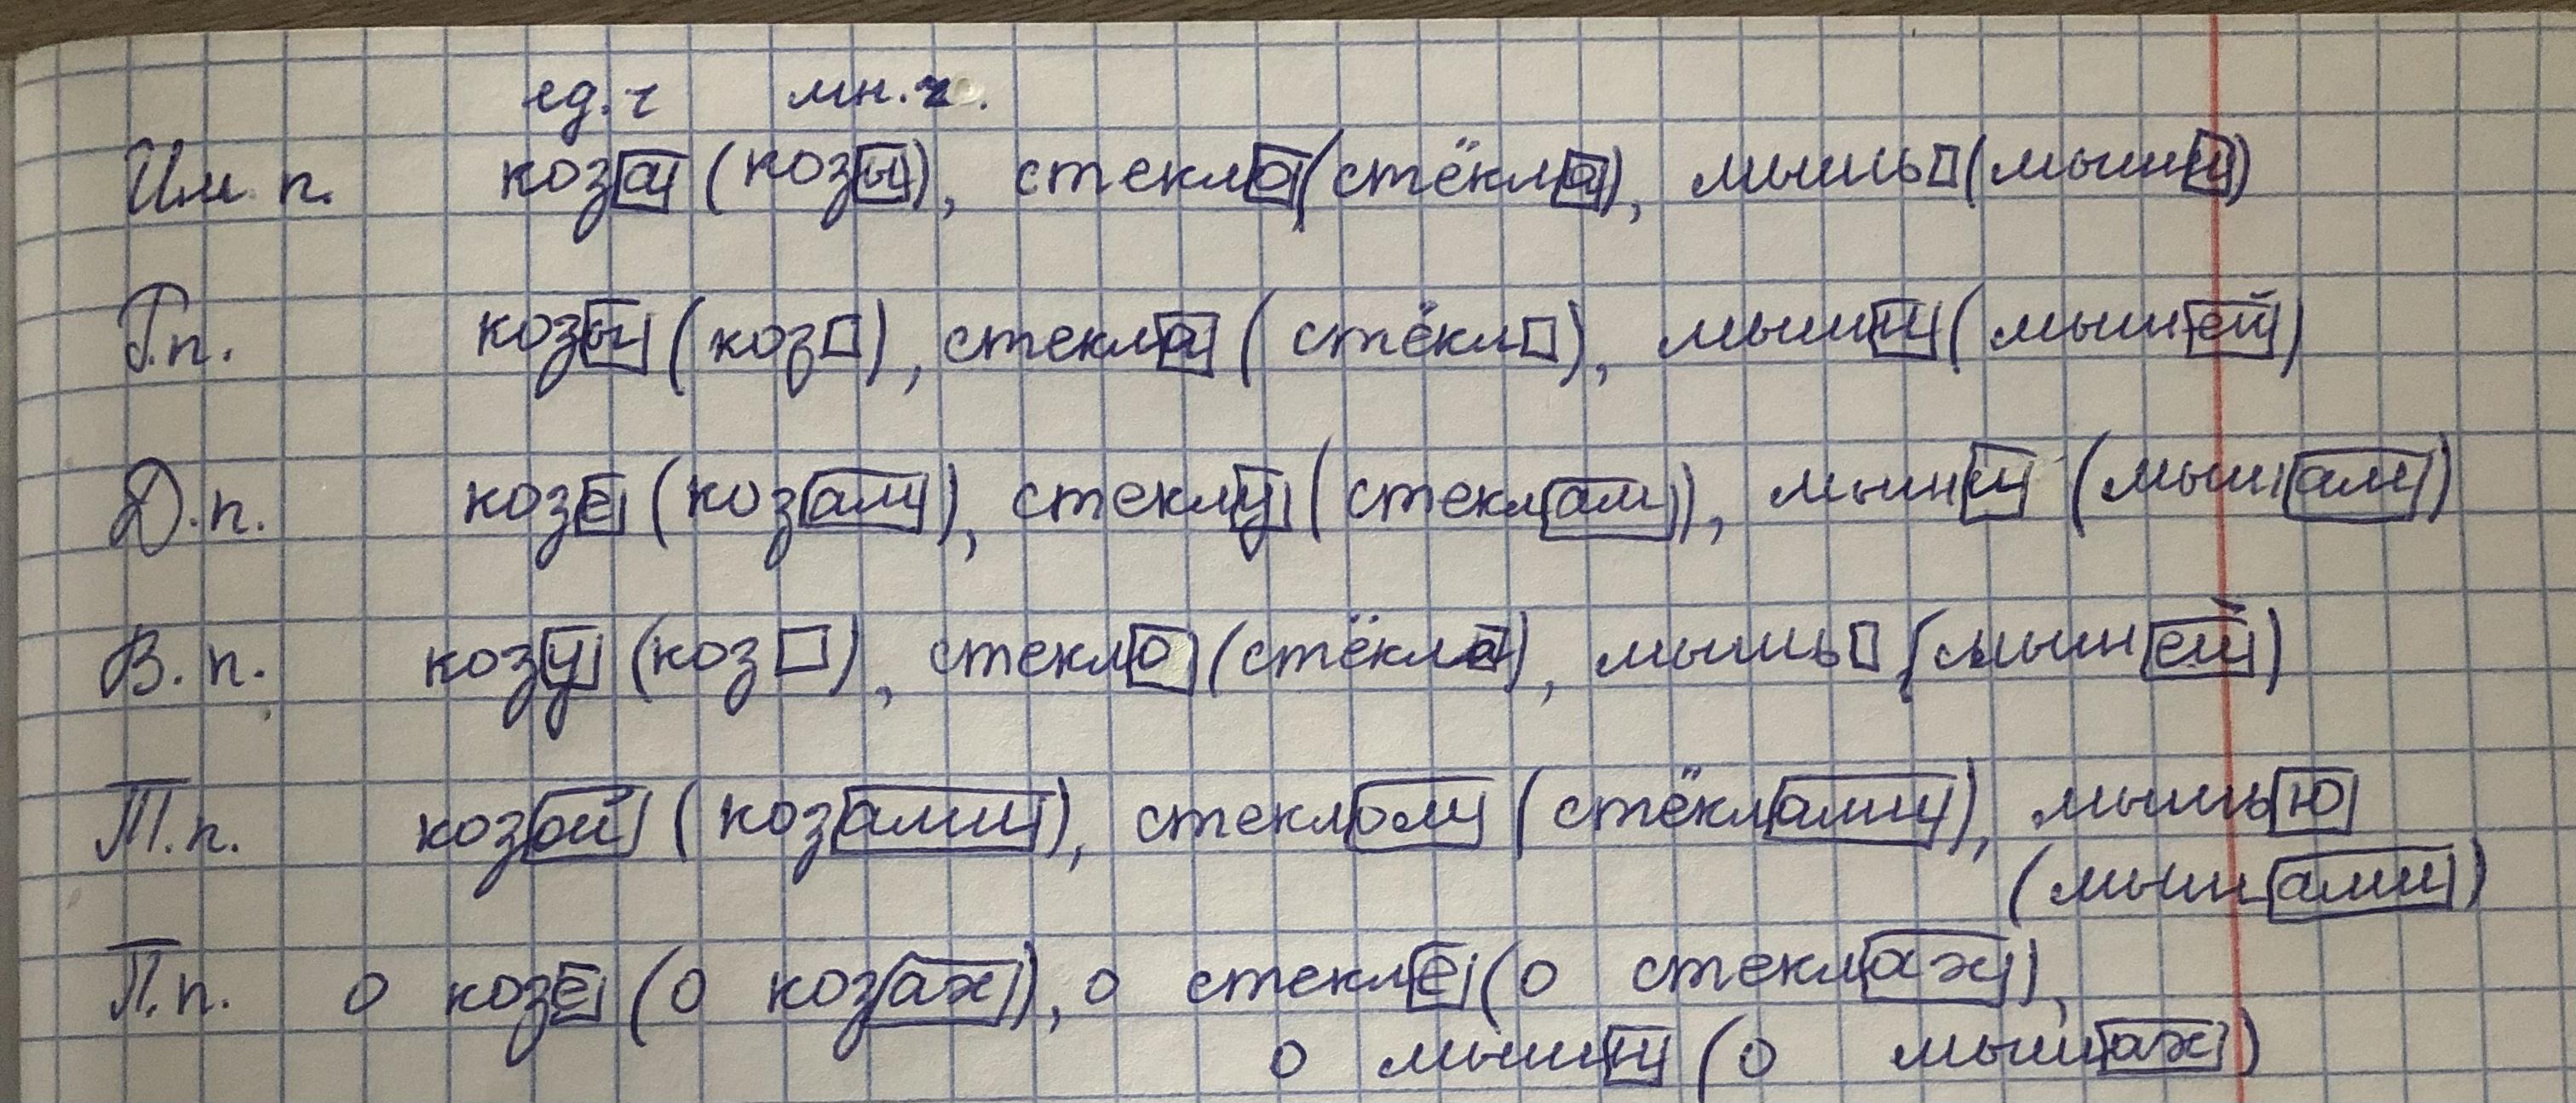 ед.ч мн.ч.
Им. п. коза (козы), стекло (стёкла), мышь (мыши)
Г.п. козы (коз), стекла (стёкл), мыши (мышей)
Д.п. козе (козам), стеклу (стеклам), мыши (мышам)
В.п. козу (коз), стекло (стёкла), мышь (мышей)
Т.п. козой (козами), стеклом (стёклами), мышью
(мышами)
П.п. о козе (о козах), о стекле (о стеклах),
о мыши (о мышах)